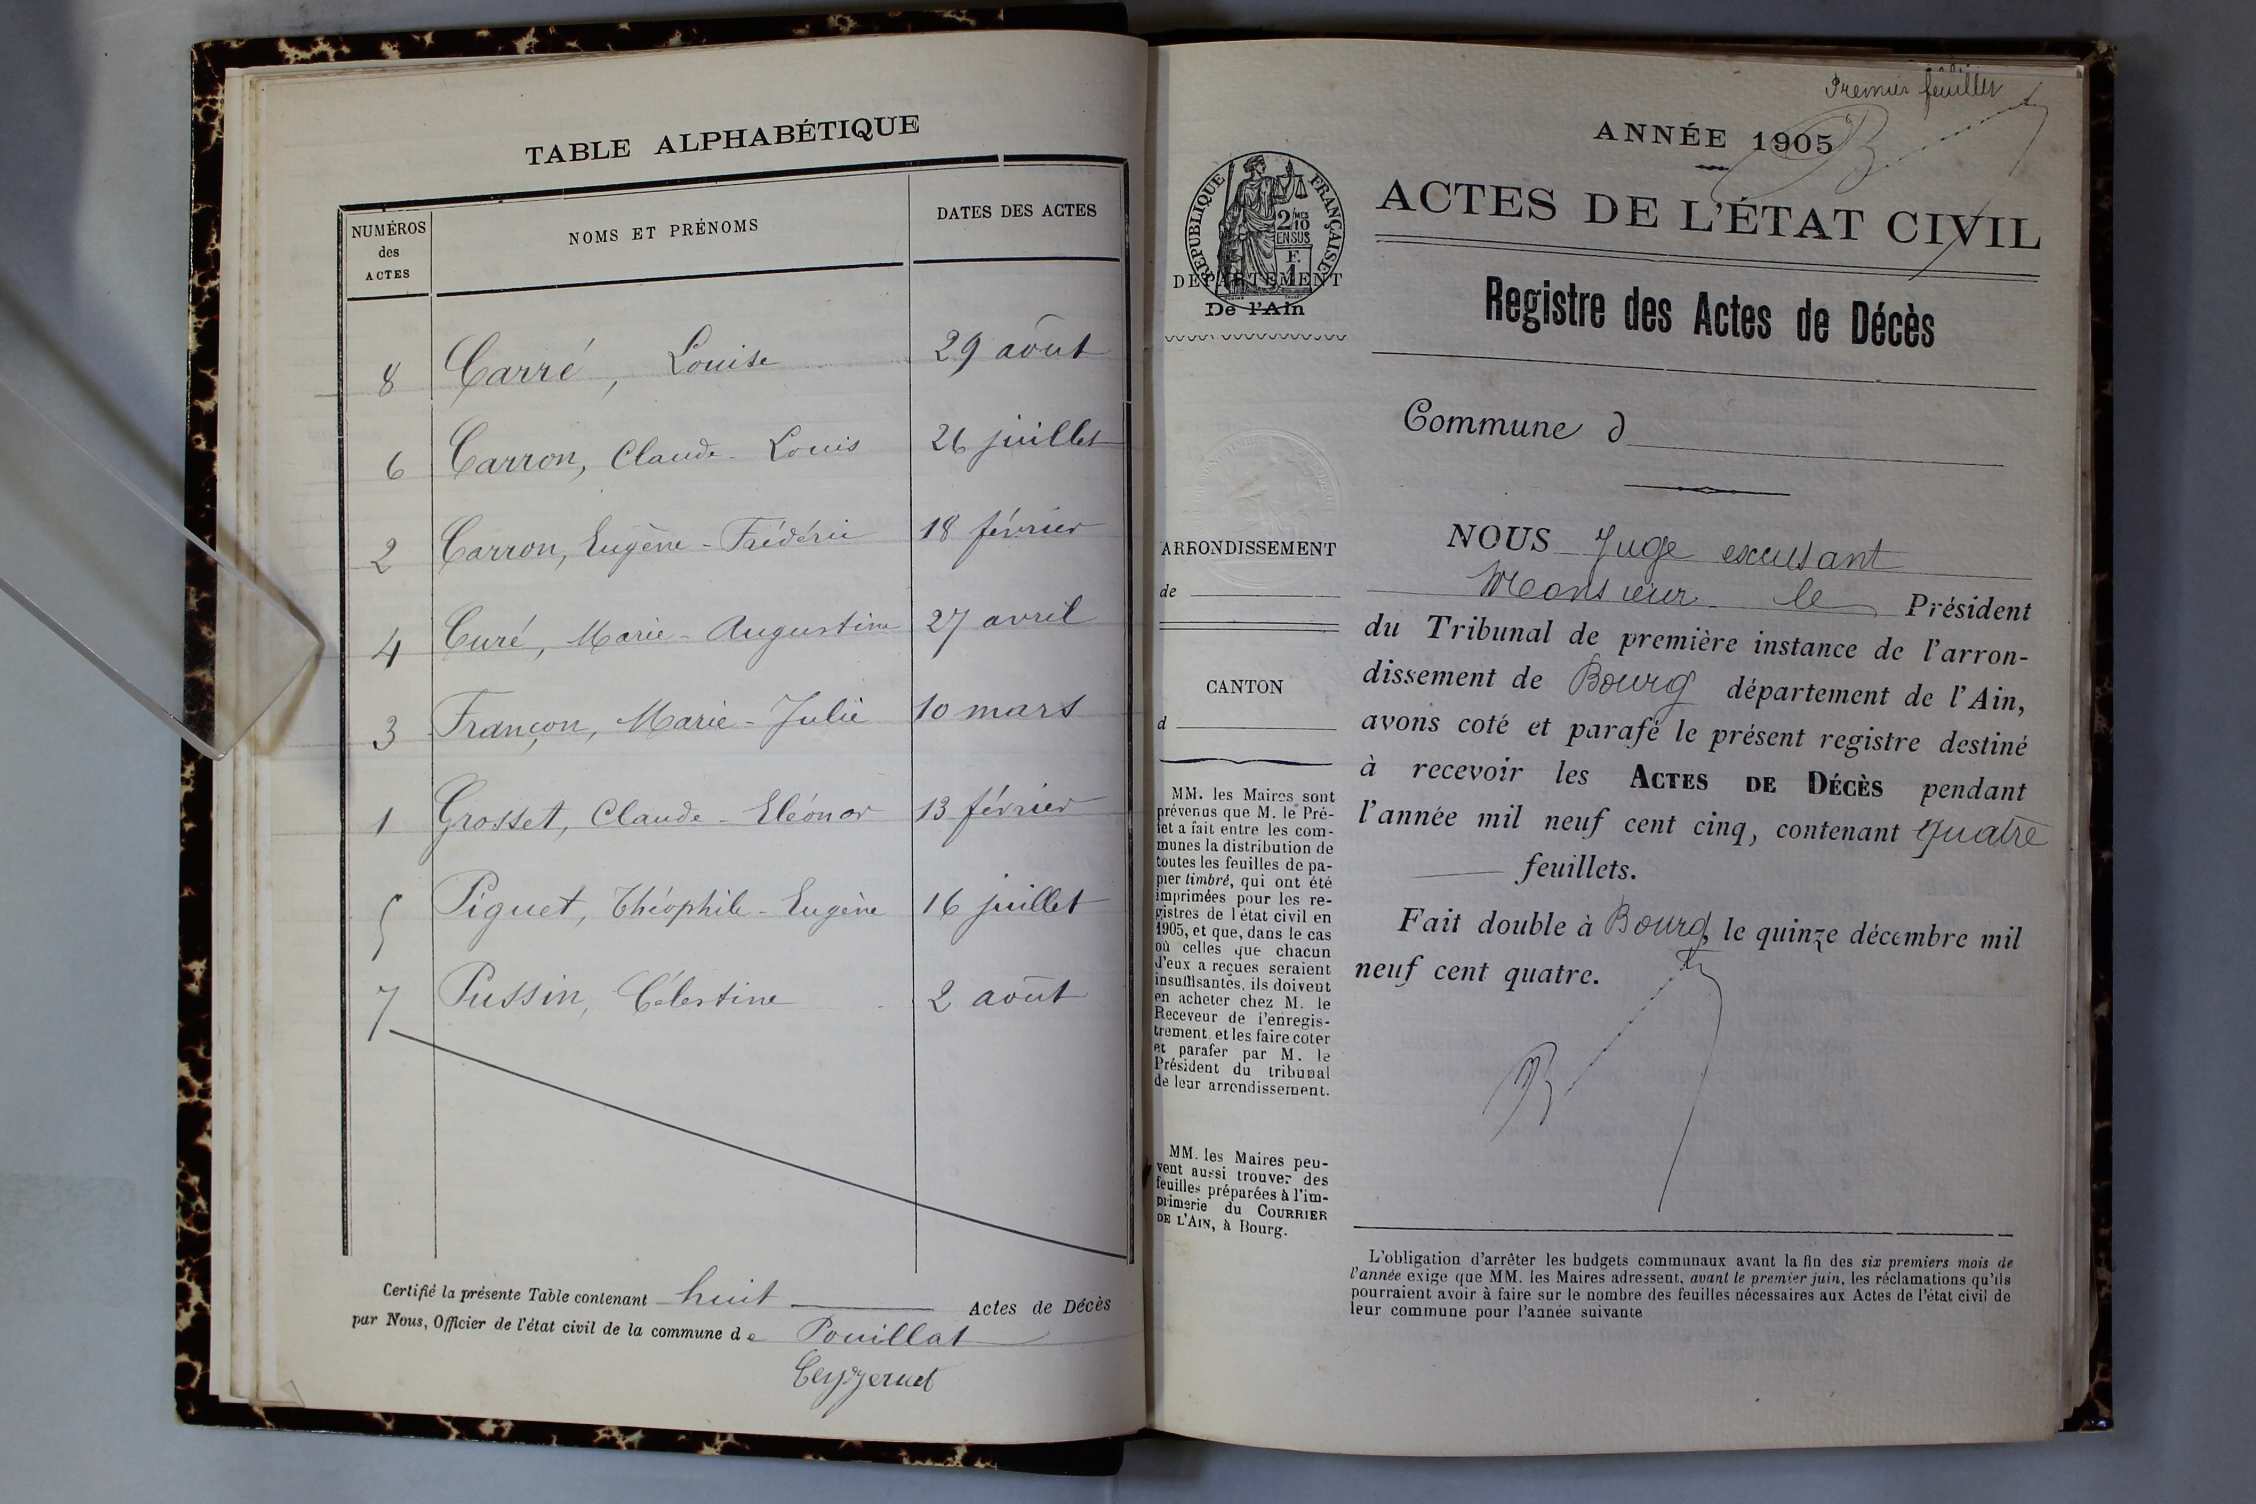 TABLE ALPHABÉTIQUE
NUMÉROS des ACTES
NOMS ET PRÉNOMS
DATES DES ACTES
8 Carré, Louise 29 août
6 Carron, Claude-Louis 26 juillet
2 Carron, Eugène-Frédéric 18 février
4 Curé, Marie-Augustine 27 avril
3 Françon, Marie-Julie 10 mars
1 Grosset, Claude-Eléonor 13 février
5 Piguet, Théophile-Eugène 16 juillet
7 Pussin, Célestine 2 août
Certifié la présente Table contenant huit Actes de Décès
par Nous, Officier de l'état civil de la commune de Pouillat
Premier feuillet
ANNÉE 1905
ACTES DE L'ÉTAT CIVIL
Registre des Actes de Décès
RÉPUBLIQUE FRANÇAISE
2/10MES
EN SUS
F.
1
DÉPARTEMENT
De l'Ain
ARRONDISSEMENT
de
CANTON
d
MM. les Maires sont
prévenus que M. le Pré-
fet a fait entre les com-
munes la distribution de
toutes les feuilles de pa-
pier timbré, qui ont été
imprimées pour les re-
gistres de l'état civil en
1905, et que, dans le cas
où celles que chacun
d'eux a reçues seraient
insuffisantes, ils doivent
en acheter chez M. le
Receveur de l'enregis-
trement et les faire coter
et parafer par M. le
Président du tribunal
de leur arrondissement.
MM. les Maires peu-
vent aussi trouver des
feuilles préparées à l'im-
primerie du COURRIER
DE L'AIN, à Bourg.
Commune d
NOUS Juge excusant
Monsieur le Président
du Tribunal de première instance de l'arron-
dissement de Bourg département de l'Ain,
avons coté et parafé le présent registre destiné
à recevoir les ACTES DE DÉCÈS pendant
l'année mil neuf cent cinq, contenant quatre
feuillets.
Fait double à Bourg, le quinze décembre mil
neuf cent quatre.
L'obligation d'arrêter les budgets communaux avant la fin des six premiers mois de
l'année exige que MM. les Maires adressent, avant le premier juin, les réclamations qu'ils
pourraient avoir à faire sur le nombre des feuilles nécessaires aux Actes de l'état civil de
leur commune pour l'année suivante